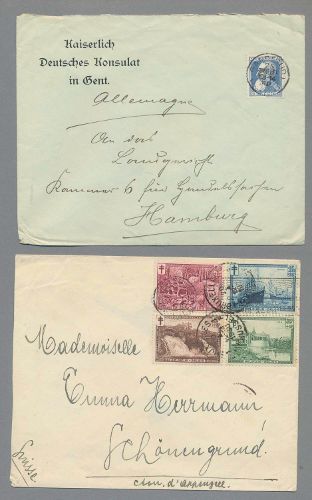 Kaiserlich
Deutsches Konsulat
in Gent.
Allemagne
An das
Landgericht
Kammer 6 für Handelssachen
Hamburg
Mademoiselle
Emma Herrmann,
Schönengrund.
Cton. d'Appenzell
Suisse